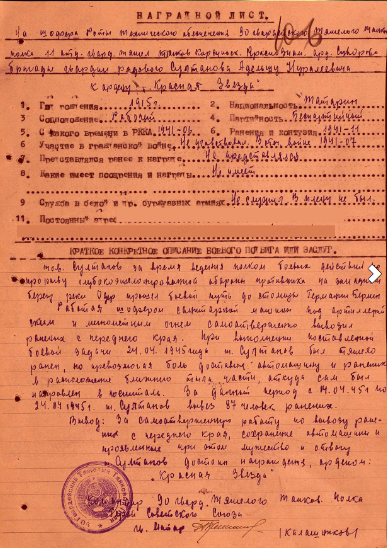 НАГРАДНОЙ ЛИСТ.
На шофера Роты Технического обеспечения 90 гвардейского Тяжелого Танкового
полка 11 отд. гвард. Танков. Краснознам. орд. Суворова
бригады гвардии рядового Султанова
К ордену „Красная Звезда"
1. Год рождения 1915г.
2. Национальность Татарин
3. Соцположение Рабочий
4. Партийность Беспартийный
5. С какого времени в РККА 1941-06
6. Ранения и контузия 1941-11
6 Участие в гражданской войне 1941-07
7. Представлялся ранее к награде Не представлялся
8. Какие имеет поощрения и награды Не имеет
9 Служба в белой и др. буржуазных армиях Не служил. В плену не был.
11. Постоянный адрес
КРАТКОЕ КОНКРЕТНОЕ ОПИСАНИЕ БОЕВОГО ПОДВИГА ИЛИ ЗАСЛУГ.
тов. Султанов за время ведения полком боевых действий по
прорыву обороны противника на западном
берегу реки Одер прошел боевой путь до столицы Германии Берлин
Работая шофером санитарной машины под артиллерий-
ским и минометным огнем самоотверженно вывозил
раненых с переднего края. При выполнении поставленной
боевой задачи 24.04.1945 года т. Султанов был тяжело
ранен, но превозмогая боль доставил автомашину и раненых
в расположение ближнего тыла части, откуда сам был
направлен в госпиталь. За данный период с 14.04.45г по
24.04.1945г т. Султанов вывез 87 человек раненых.
Вывод: За самоотверженную работу по вывозу ране-
ных с переднего края, сохранение автомашины и
проявленные при этом мужество и отвагу
т. Султанов достоин награждения орденом:
„Красная Звезда"
Командир 90 гвард. Тяжелого Танков. Полка
Герой Советского Союза
гв. Майор